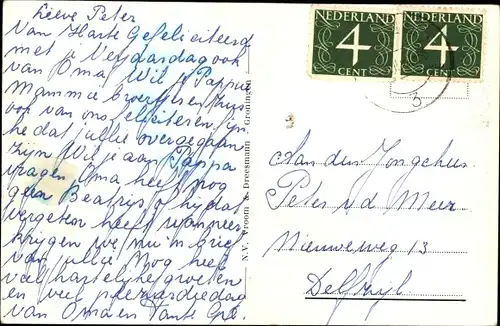 Lieve Peter
Van Harte Gefeliciteerd
met je Verjaardag ook
van Oma Wil je Pappie
Mammie broertjes en zus
ook van ons feliciteren
he dat jullie overgegaan
zijn Wil je aan Pappa
vragen Oma heeft nog
geen of hij dat
vergeten heeft wanneer
krijgen we nu 'n brief
van jullie Nog heel
veel hartelijke groeten
en veel plezier
van Oma en Tante
N.V. Vroom & Dreesmann Groningen
NEDERLAND
4
CENT
NEDERLAND
4
CENT
Aan den Jongeheer
Peter v.d. Meer
Nieuweweg 13
Delfzijl